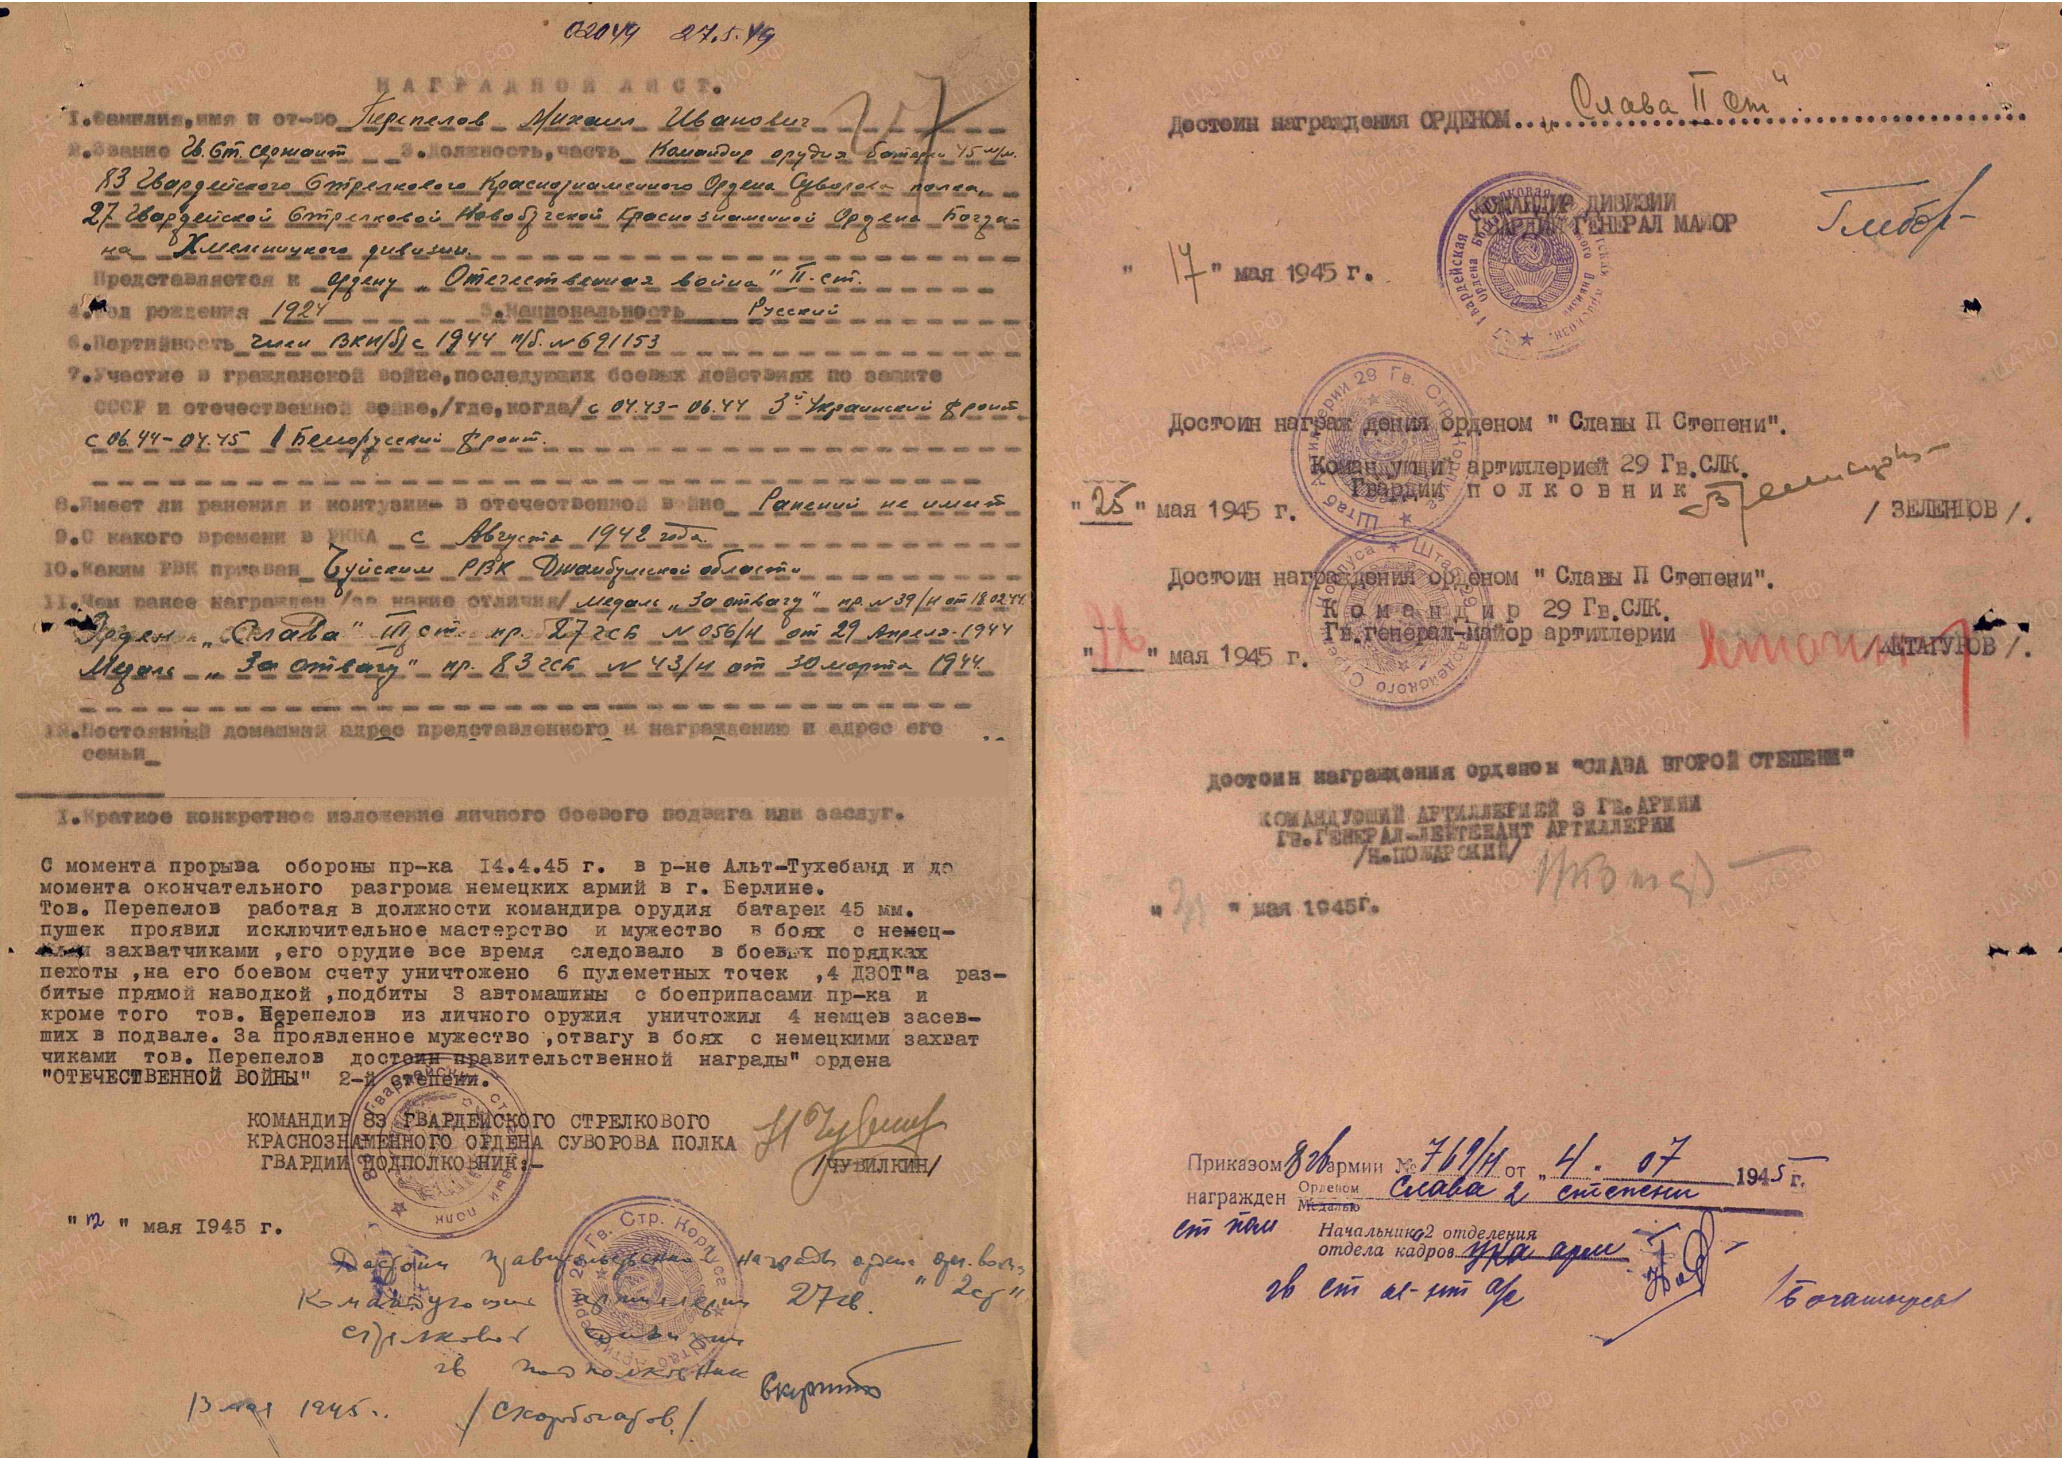 02044 27.5.49
НАГРАДНОЙ ЛИСТ.
1.Фамилия,имя и от-во Перепелов Михаил Иванович
2.Звание Гв. Ст. сержант 3.Должность,часть Командир орудия батареи 45 м/м.
83 Гвардейского Стрелкового Краснознаменного Ордена Суворова полка,
27 Гвардейской Стрелковой Новобугской Краснознаменной Ордена Богда-
на Хмельницкого дивизии.
Представляется к ордену „Отечественная война" II ст.
4.Год рождения 1924 5.Национальность Русский
6.Партийность член ВКП/б/ с 1944 п/б. № 691153
7.Участие в гражданской войне,последующих боевых действиях по защите
СССР и отечественной войне,/где,когда/ с 04.43-06.44 3й Украинский фронт
с 06.44-04.45 1 Белорусский фронт.
8.Имеет ли ранения и контузии- в отечественной войне Ранений не имеет
9.С какого времени в РККА с Августа 1942 года.
10.Каким РВК призван Чуйским РВК Джамбульской области
11.Чем ранее награжден /за какие отличия/ медаль „За отвагу" пр. № 39/н от 18.02.44
Орден „Слава" III ст. пр. 27 гсд № 056/н от 29 Апреля-1944
Медаль „За отвагу" пр. 83 гсп № 43/н от 30 марта 1944.
12.Постоянный домашний адрес представленного к награждению и адрес его
семьи
I.Краткое конкретное изложение личного боевого подвига или заслуг.
С момента прорыва обороны пр-ка 14.4.45 г. в р-не Альт-Тухебанд и до
момента окончательного разгрома немецких армий в г. Берлине.
Тов. Перепелов работая в должности командира орудия батареи 45 мм.
пушек проявил исключительное мастерство и мужество в боях с немец-
кими захватчиками ,его орудие все время следовало в боевых порядках
пехоты ,на его боевом счету уничтожено 6 пулеметных точек ,4 ДЗОТ"а раз-
битые прямой наводкой ,подбиты 3 автомашины с боеприпасами пр-ка и
кроме того тов. Перепелов из личного оружия уничтожил 4 немцев засев-
ших в подвале. За проявленное мужество ,отвагу в боях с немецкими захват
чиками тов. Перепелов достоин правительственной награды" ордена
"ОТЕЧЕСТВЕННОЙ ВОЙНЫ" 2-й степени.
КОМАНДИР 83 ГВАРДЕЙСКОГО СТРЕЛКОВОГО
КРАСНОЗНАМЕННОГО ОРДЕНА СУВОРОВА ПОЛКА
ГВАРДИИ ПОДПОЛКОВНИК:-
/ЧУВИЛКИН/
"12" мая 1945 г.
Достоин правительственной награды орден „отеч. войны 2 ст"
Командующий артиллерии 27 гв.
стрелковой дивизии
гв подполковник
13 мая 1945г. /Скоробогатов./
Достоин награждения ОРДЕНОМ „Слава II ст".
КОМАНДИР ДИВИЗИИ
ГВАРДИИ ГЕНЕРАЛ МАЙОР Глебов
"17" мая 1945 г.
Достоин награждения орденом " Славы II Степени".
Командующий артиллерией 29 Гв.СЛК.
Гвардии полковник
"25" мая 1945 г. / ЗЕЛЕНЦОВ /.
Достоин награждения орденом " Славы II Степени".
Командир 29 Гв.СЛК.
Гв.генерал-майор артиллерии
" " мая 1945 г. /ХЕТАГУРОВ /.
достоин награждения орденом "СЛАВА ВТОРОЙ СТЕПЕНИ"
КОМАНДУЮЩИЙ АРТИЛЛЕРИЕЙ 8 ГВ.АРМИИ
ГВ.ГЕНЕРАЛ-ЛЕЙТЕНАНТ АРТИЛЛЕРИИ
/Н.ПОЖАРСКИЙ/
" " мая 1945г.
Приказом 8 гв армии № 769/н от „4" 07 1945 г.
награжден Орденом Медалью Слава 2 степени
ст пом Начальника 2 отделения
отдела кадров
гв ст л-нт а/с /Богатырев/